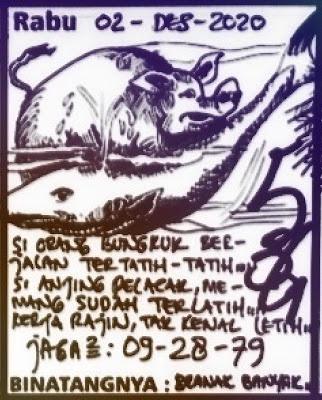 Rabu 02 - DES - 2020
SI ORANG BUNGKUK BER-
JALAN TERTATIH-TATIH..
SI ANJING PELACAK, ME-
MANG SUDAH TERLATIH..
KERJA RAJIN, TAK KENAL LETIH..
JAGA²: 09-28-79
BINATANGNYA : BRANAK BANYAK.